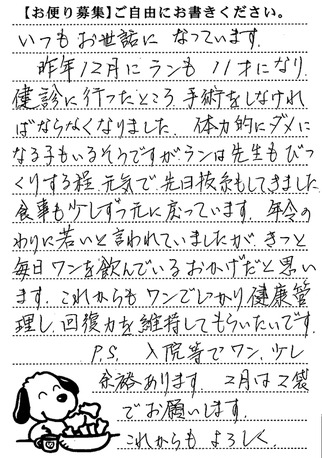 【お便り募集】ご自由にお書きください。
いつもお世話になっています。
昨年12月にランも11才になり、
健診に行ったところ手術をしなけれ
ばならなくなりました。体力的にダメに
なる子もいるそうですが、ランは先生もびっ
くりする程、元気で先日抜糸もしてきました。
食事も少しずつ元に戻っています。年令の
わりに若いと言われていましたが、きっと
毎日ワンを飲んでいるおかげだと思い
ます。これからもワンでしっかり健康管
理し、回復力を維持してもらいたいです。
P.S. 入院等でワン、少し
余裕あります。2月は2袋
でお願いします。
これからもよろしく。